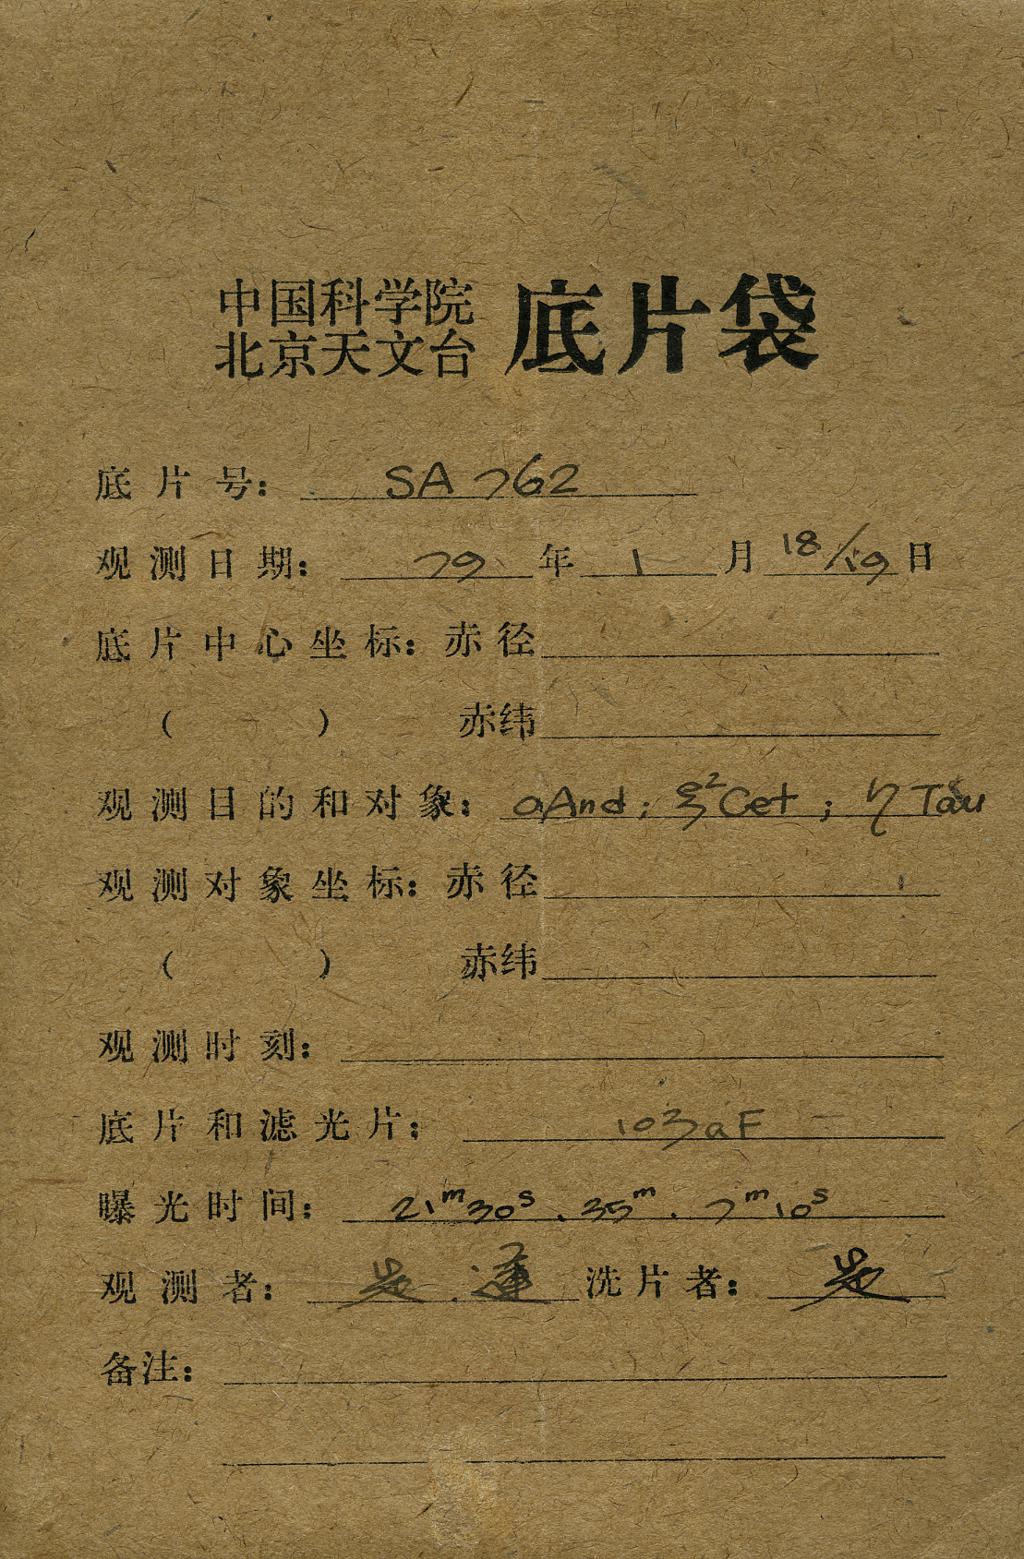 中国科学院
北京天文台 底片袋
底片号: SA 762
观测日期: 79 年 1 月 18/19 日
底片中心坐标: 赤径
( ) 赤纬
观测目的和对象: αAnd; ξ²Cet; η Tau
观测对象坐标: 赤径
( ) 赤纬
观测时刻:
底片和滤光片: 103aF
曝光时间: 21ᵐ30ˢ. 35ᵐ. 7ᵐ10ˢ
观测者: 洗片者:
备注: